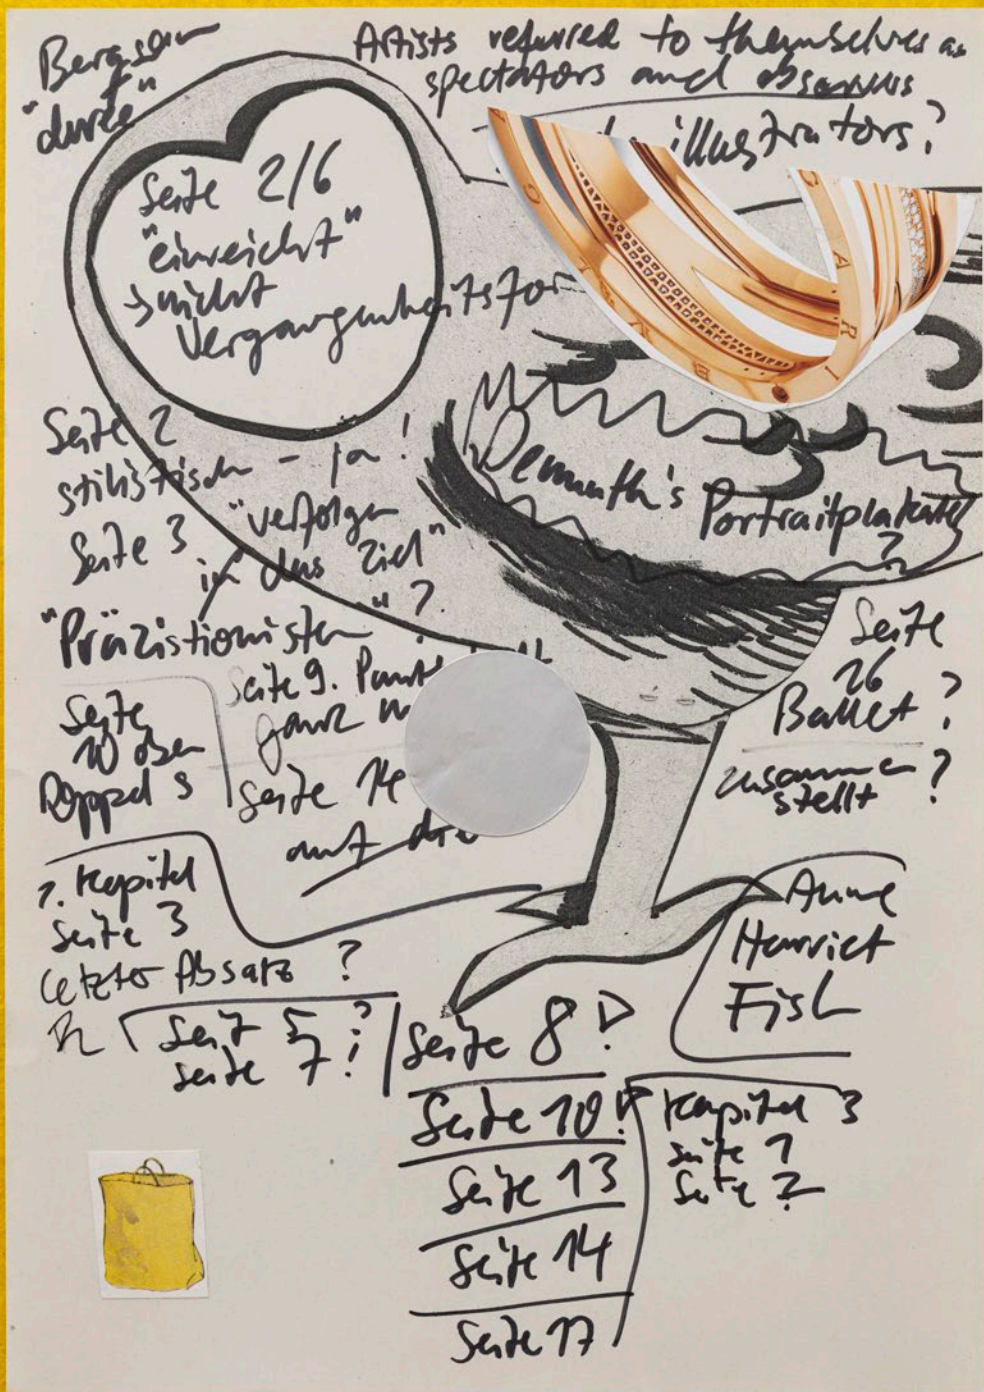 Bergson
"durée"
Artists referred to themselves as
spectators and observers
illustrators?
Seite 2/6
"einreicht"
→ nicht
Vergangenheitsfor
Seite 2
stilistisch – ja!
Seite 3 "verfolgen
das Ziel"
"Präzistionisten"?
Demuth's
Portraitplakate
?
Seite
10 oben
Doppel s
Seite 9.
ganz
Seite 14
auf die
Seite
26
Ballet?
zusammen
stellt?
Kapitel
Seite 3
letzter Absatz?
Seit 5?
Seite 7?
Anne
Harriet
Fish
Seite 8
Seite 10
Seite 13
Seite 14
Seite 17
Kapitel 3
Seite 1
Seite 2